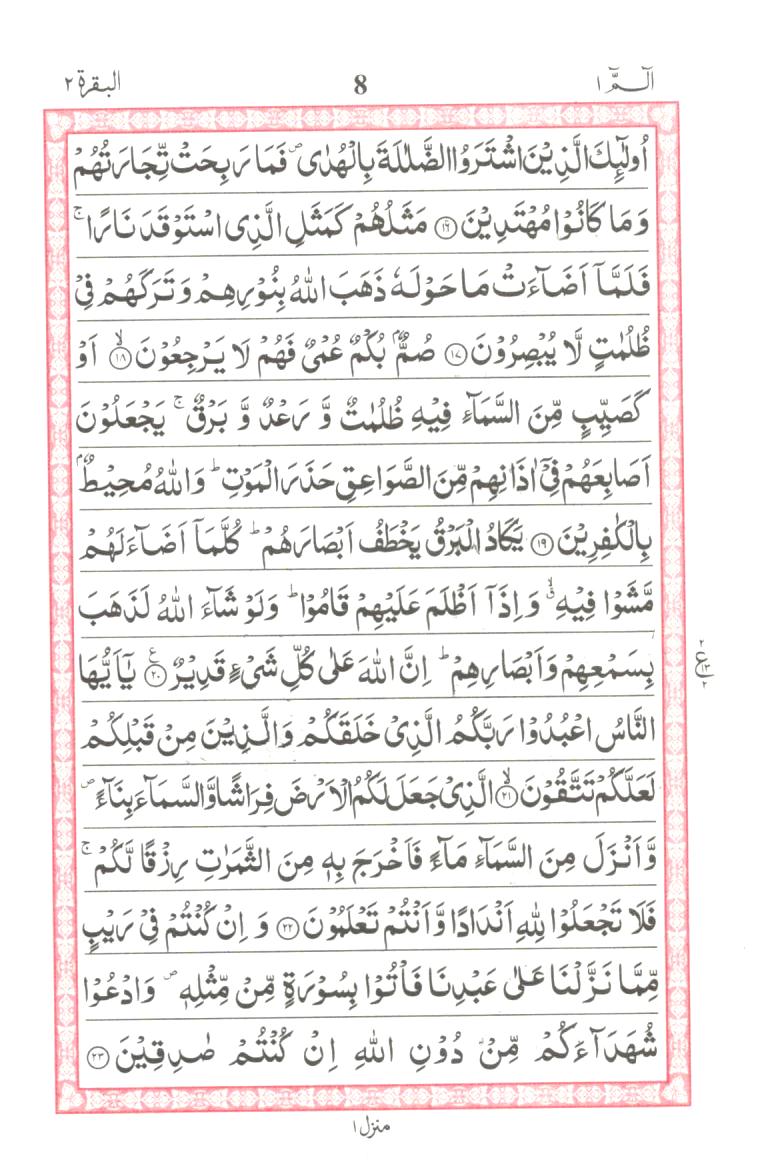 الٓمّٓ ١ 8 البقرة ٢
اُولٰٓئِكَ الَّذِیْنَ اشْتَرَوُا الضَّلٰلَةَ بِالْهُدٰی ۪ فَمَا رَبِحَتْ تِّجَارَتُهُمْ
وَ مَا كَانُوْا مُهْتَدِیْنَ ﴿۱۶﴾ مَثَلُهُمْ كَمَثَلِ الَّذِی اسْتَوْقَدَ نَارًا ۚ
فَلَمَّاۤ اَضَآءَتْ مَا حَوْلَهٗ ذَهَبَ اللّٰهُ بِنُوْرِهِمْ وَ تَرَكَهُمْ فِیْ
ظُلُمٰتٍ لَّا یُبْصِرُوْنَ ﴿۱۷﴾ صُمٌّۢ بُكْمٌ عُمْیٌ فَهُمْ لَا یَرْجِعُوْنَ ﴿ۙ۱۸﴾ اَوْ
كَصَیِّبٍ مِّنَ السَّمَآءِ فِیْهِ ظُلُمٰتٌ وَّ رَعْدٌ وَّ بَرْقٌ ۚ یَجْعَلُوْنَ
اَصَابِعَهُمْ فِیْۤ اٰذَانِهِمْ مِّنَ الصَّوَاعِقِ حَذَرَ الْمَوْتِ ؕ وَ اللّٰهُ مُحِیْطٌۢ
بِالْكٰفِرِیْنَ ﴿۱۹﴾ یَكَادُ الْبَرْقُ یَخْطَفُ اَبْصَارَهُمْ ؕ كُلَّمَاۤ اَضَآءَ لَهُمْ
مَّشَوْا فِیْهِ ۙۗ وَ اِذَاۤ اَظْلَمَ عَلَیْهِمْ قَامُوْا ؕ وَ لَوْ شَآءَ اللّٰهُ لَذَهَبَ
بِسَمْعِهِمْ وَ اَبْصَارِهِمْ ؕ اِنَّ اللّٰهَ عَلٰی كُلِّ شَیْءٍ قَدِیْرٌ ﴿۲۰﴾ ع یٰۤاَیُّهَا
٢ ع ١٣ ٢
النَّاسُ اعْبُدُوْا رَبَّكُمُ الَّذِیْ خَلَقَكُمْ وَ الَّذِیْنَ مِنْ قَبْلِكُمْ
لَعَلَّكُمْ تَتَّقُوْنَ ﴿ۙ۲۱﴾ الَّذِیْ جَعَلَ لَكُمُ الْاَرْضَ فِرَاشًا وَّ السَّمَآءَ بِنَآءً ۪
وَّ اَنْزَلَ مِنَ السَّمَآءِ مَآءً فَاَخْرَجَ بِهٖ مِنَ الثَّمَرٰتِ رِزْقًا لَّكُمْ ۚ
فَلَا تَجْعَلُوْا لِلّٰهِ اَنْدَادًا وَّ اَنْتُمْ تَعْلَمُوْنَ ﴿۲۲﴾ وَ اِنْ كُنْتُمْ فِیْ رَیْبٍ
مِّمَّا نَزَّلْنَا عَلٰی عَبْدِنَا فَاْتُوْا بِسُوْرَةٍ مِّنْ مِّثْلِهٖ ۪ وَ ادْعُوْا
شُهَدَآءَكُمْ مِّنْ دُوْنِ اللّٰهِ اِنْ كُنْتُمْ صٰدِقِیْنَ ﴿۲۳﴾
منزل ١